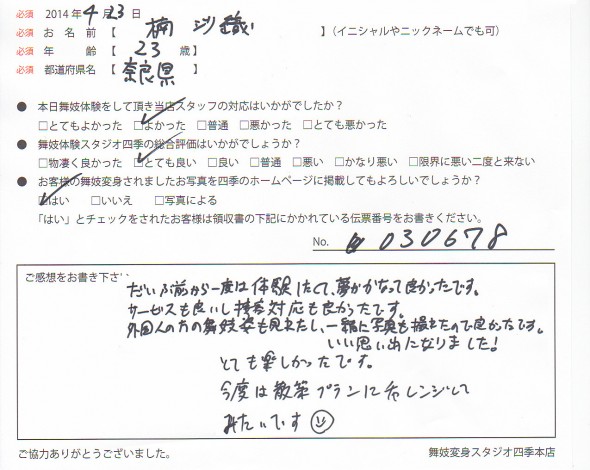 必須 2014年4月23日
必須 お名前【 楠 沙織 】(イニシャルやニックネームでも可)
必須 年齢【 23 歳】
必須 都道府県名【 奈良県 】
● 本日舞妓体験をして頂き当店スタッフの対応はいかがでしたか？
□とてもよかった □よかった □普通 □悪かった □とても悪かった
● 舞妓体験スタジオ四季の総合評価はいかがでしょうか？
□物凄く良かった □とても良い □良い □普通 □悪い □かなり悪い □限界に悪い二度と来ない
● お客様の舞妓変身されましたお写真を四季のホームページに掲載してもよろしいでしょうか？
□はい □いいえ □写真による
「はい」とチェックをされたお客様は領収書の下記にかかれている伝票番号をお書きください。
No. 030678
ご感想をお書き下さい
だいぶ前から一度は体験したくて、夢がかなって良かったです。
サービスも良いし接客対応も良かったです。
外国人の方の舞妓姿も見れたし、一緒に写真も撮れたので良かったです。
いい思い出になりました!
とても楽しかったです。
今度は散策プランにチャレンジして
みたいです
ご協力ありがとうございました。
舞妓変身スタジオ四季本店